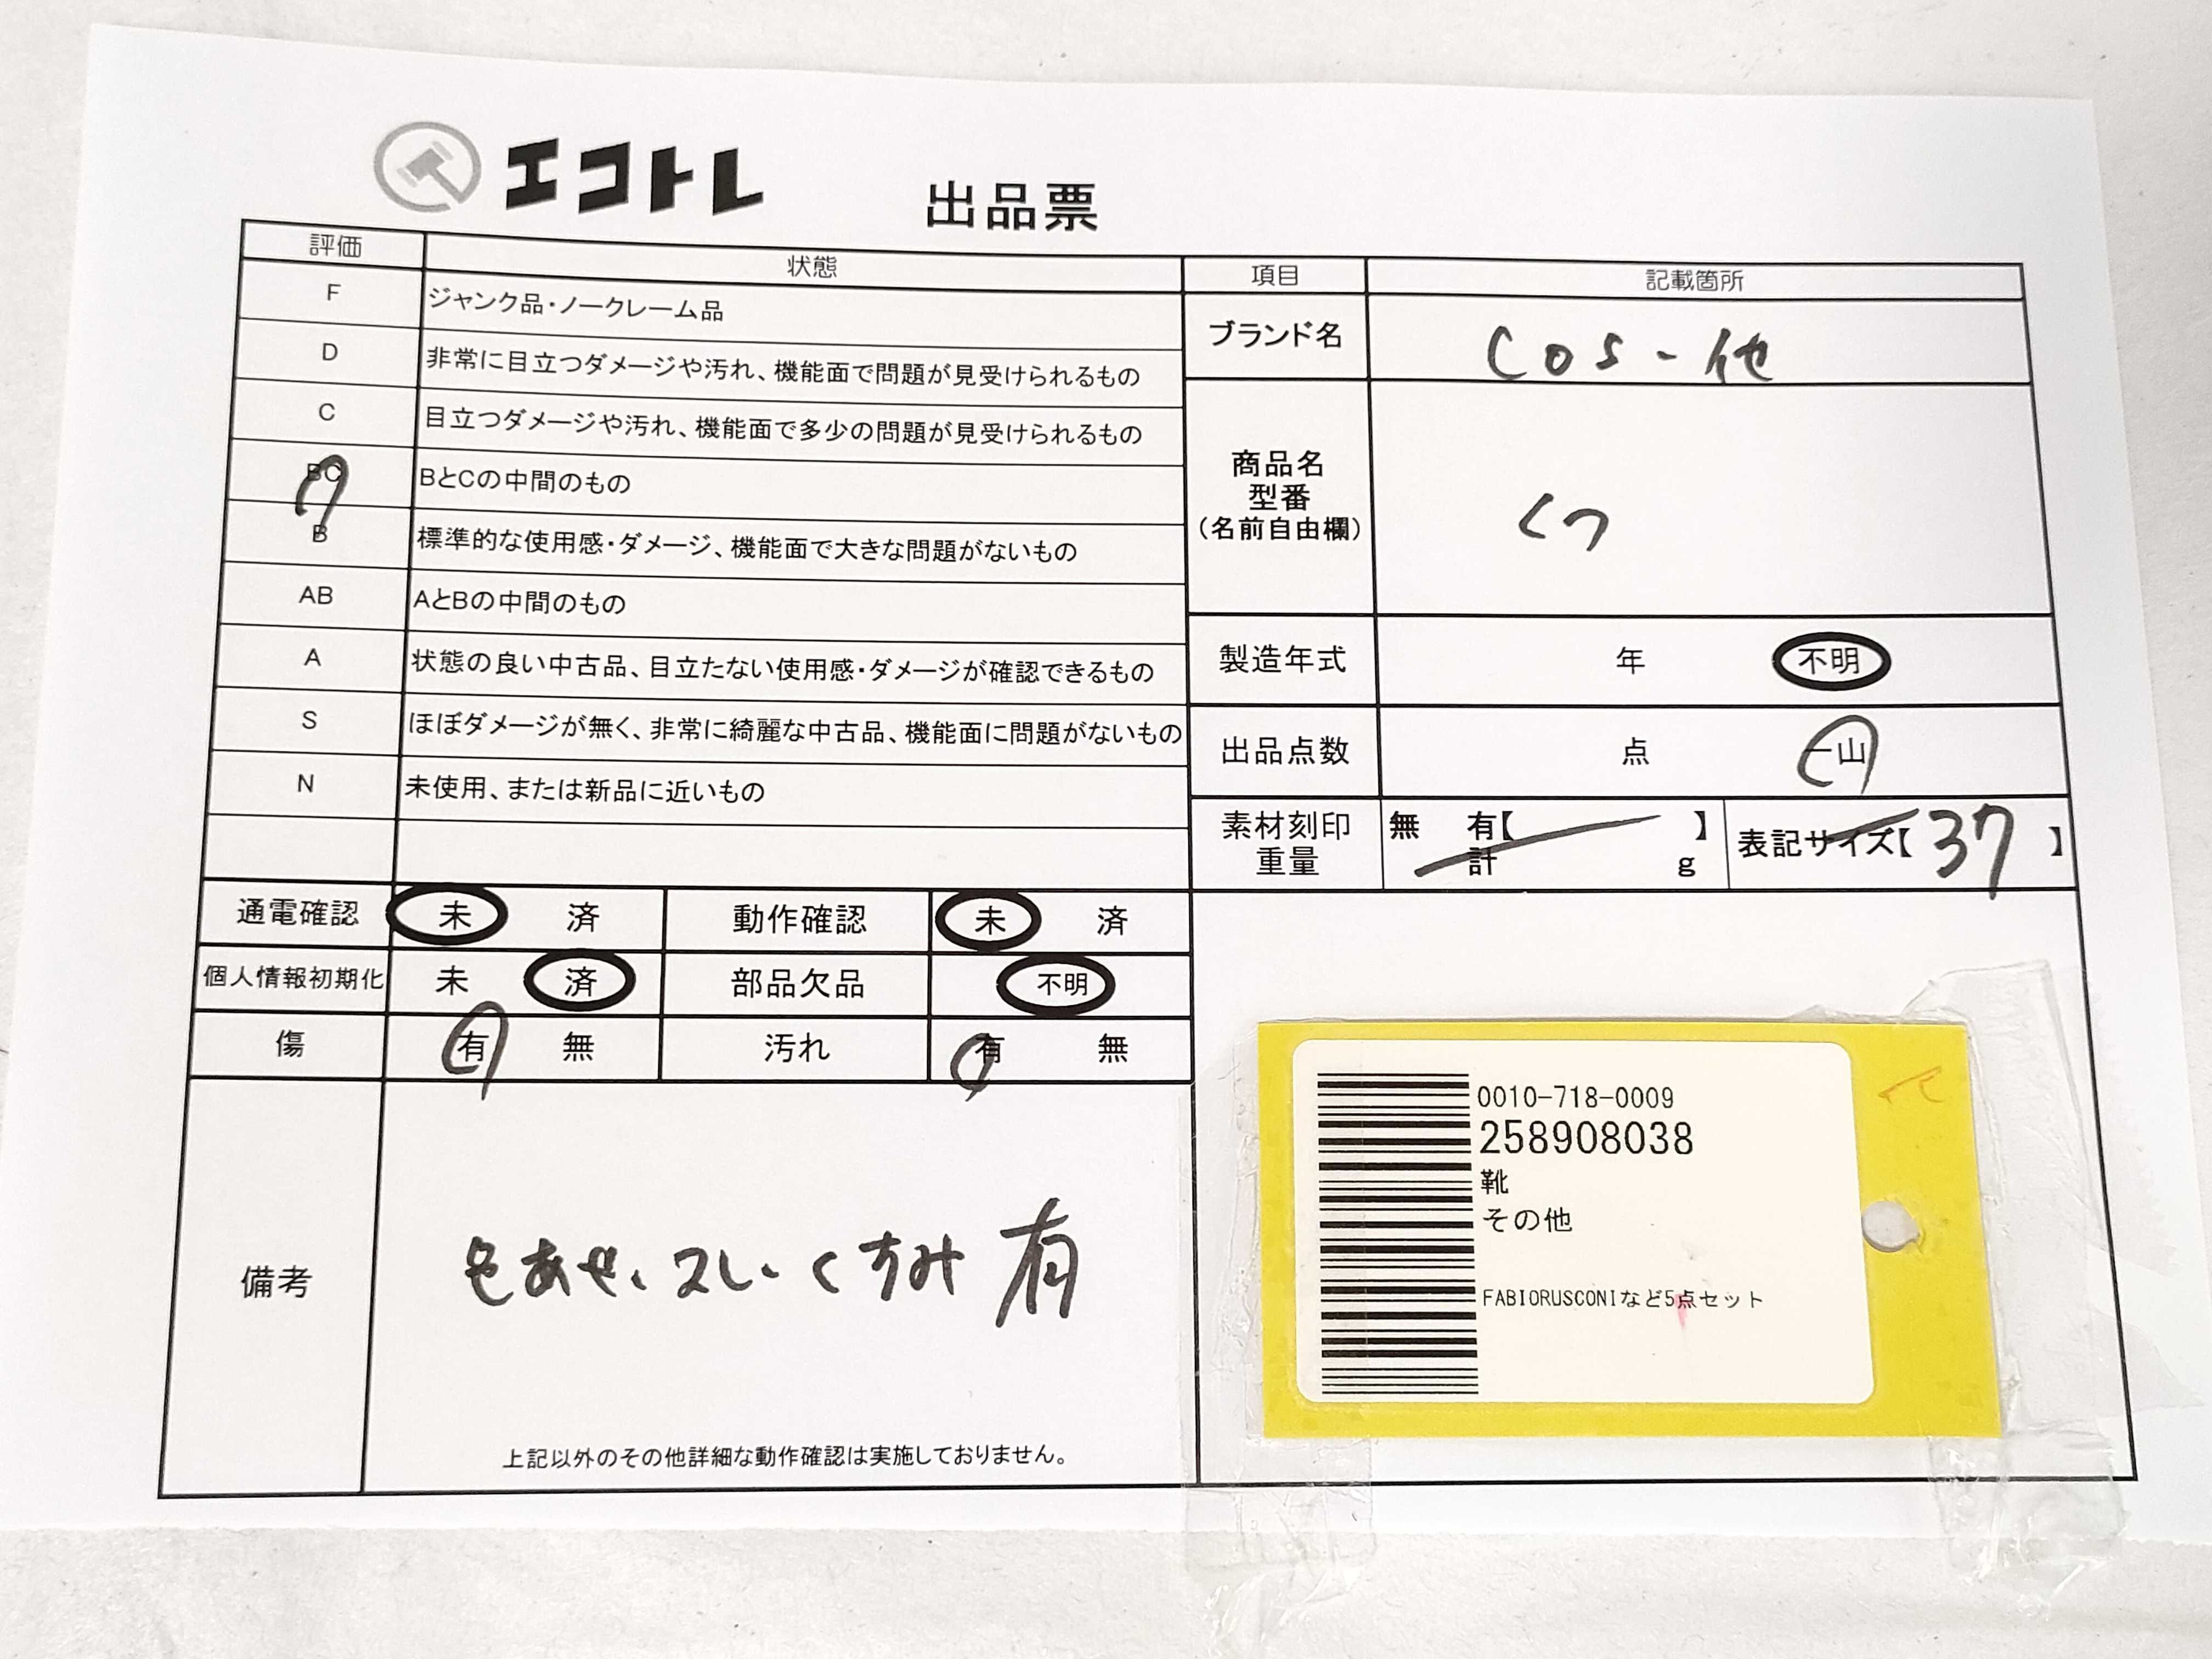 エコトレ 出品票
評価 状態
F ジャンク品・ノークレーム品
D 非常に目立つダメージや汚れ、機能面で問題が見受けられるもの
C 目立つダメージや汚れ、機能面で多少の問題が見受けられるもの
BC BとCの中間のもの
B 標準的な使用感・ダメージ、機能面で大きな問題がないもの
AB AとBの中間のもの
A 状態の良い中古品、目立たない使用感・ダメージが確認できるもの
S ほぼダメージが無く、非常に綺麗な中古品、機能面に問題がないもの
N 未使用、または新品に近いもの
項目 記載箇所
ブランド名 COS-他
商品名
型番
(名前自由欄)
くつ
製造年式 年 不明
出品点数 点 一山
素材刻印 無 有【 】
重量 計 g
表記サイズ【 37 】
通電確認 未 済 動作確認 未 済
個人情報初期化 未 済 部品欠品 不明
傷 有 無 汚れ 有 無
備考
色あせ、スレ、くすみ 有
上記以外のその他詳細な動作確認は実施しておりません。
0010-718-0009
258908038
靴
その他
FABIORUSCONIなど5点セット